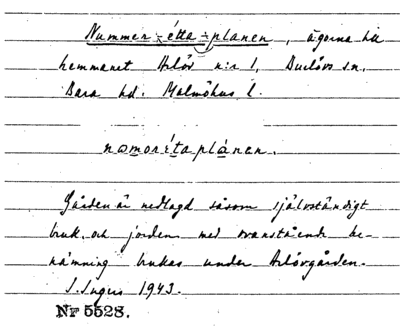 Nummer-étta-planen, ägorna till
hemmanet Arlöv n:r 1, Burlövs sn,
Bara hd. Malmöhus l.
nomoréta plánen.
Gården är nedlagd såsom självständigt
bruk och jorden med ovanstående be-
nämning brukas under Arlövgården.
S. Ingers 1943.
Nr 5528.